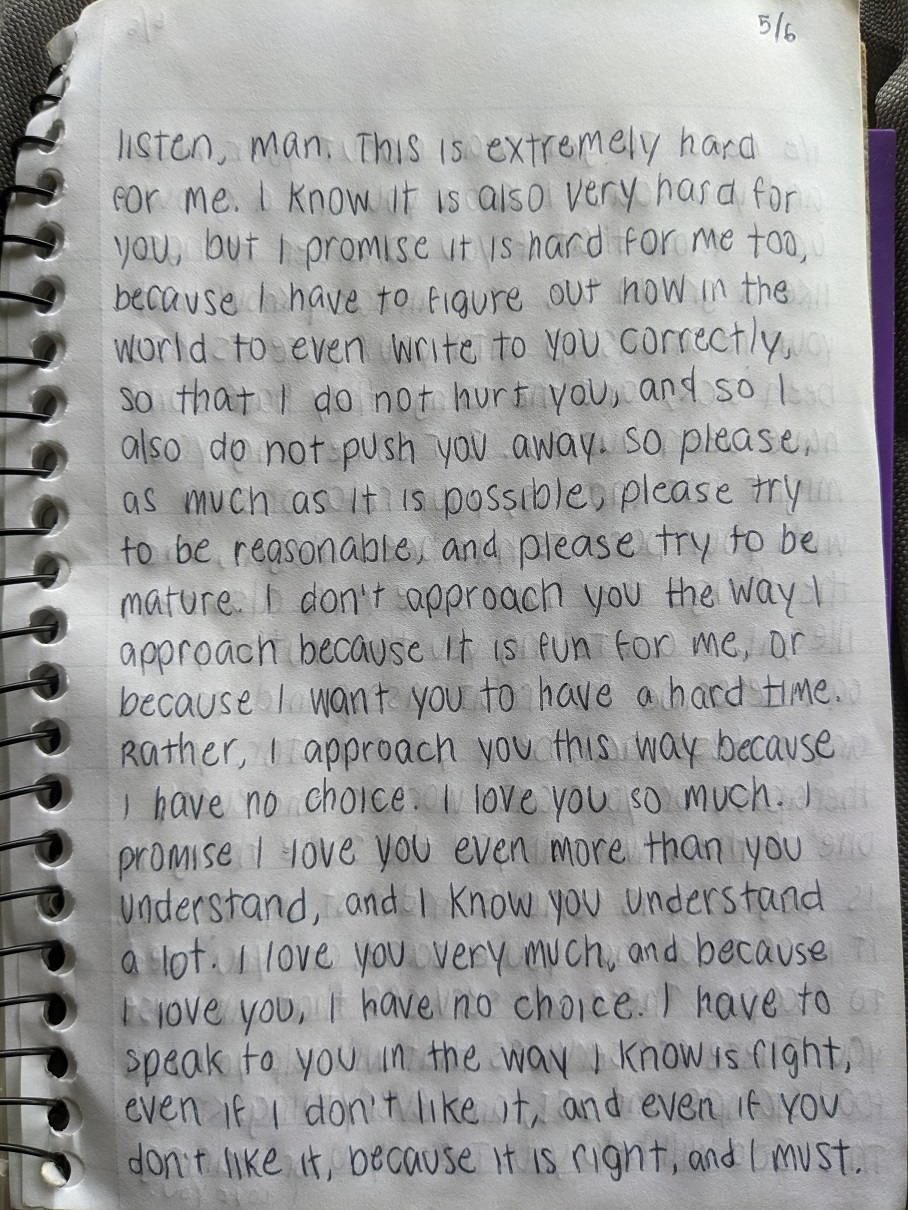 5/6
listen, man. This is extremely hard
for me. I know it is also very hard for
you, but I promise it is hard for me too,
because I have to figure out how in the
world to even write to you correctly,
so that I do not hurt you, and so I
also do not push you away. So please,
as much as it is possible, please try
to be reasonable, and please try to be
mature. I don't approach you the way I
approach because it is fun for me, or
because I want you to have a hard time.
Rather, I approach you this way because
I have no choice. I love you so much. I
promise I love you even more than you
understand, and I know you understand
a lot. I love you very much, and because
I love you, I have no choice. I have to
speak to you in the way I know is right,
even if I don't like it, and even if you
don't like it, because it is right, and I must.